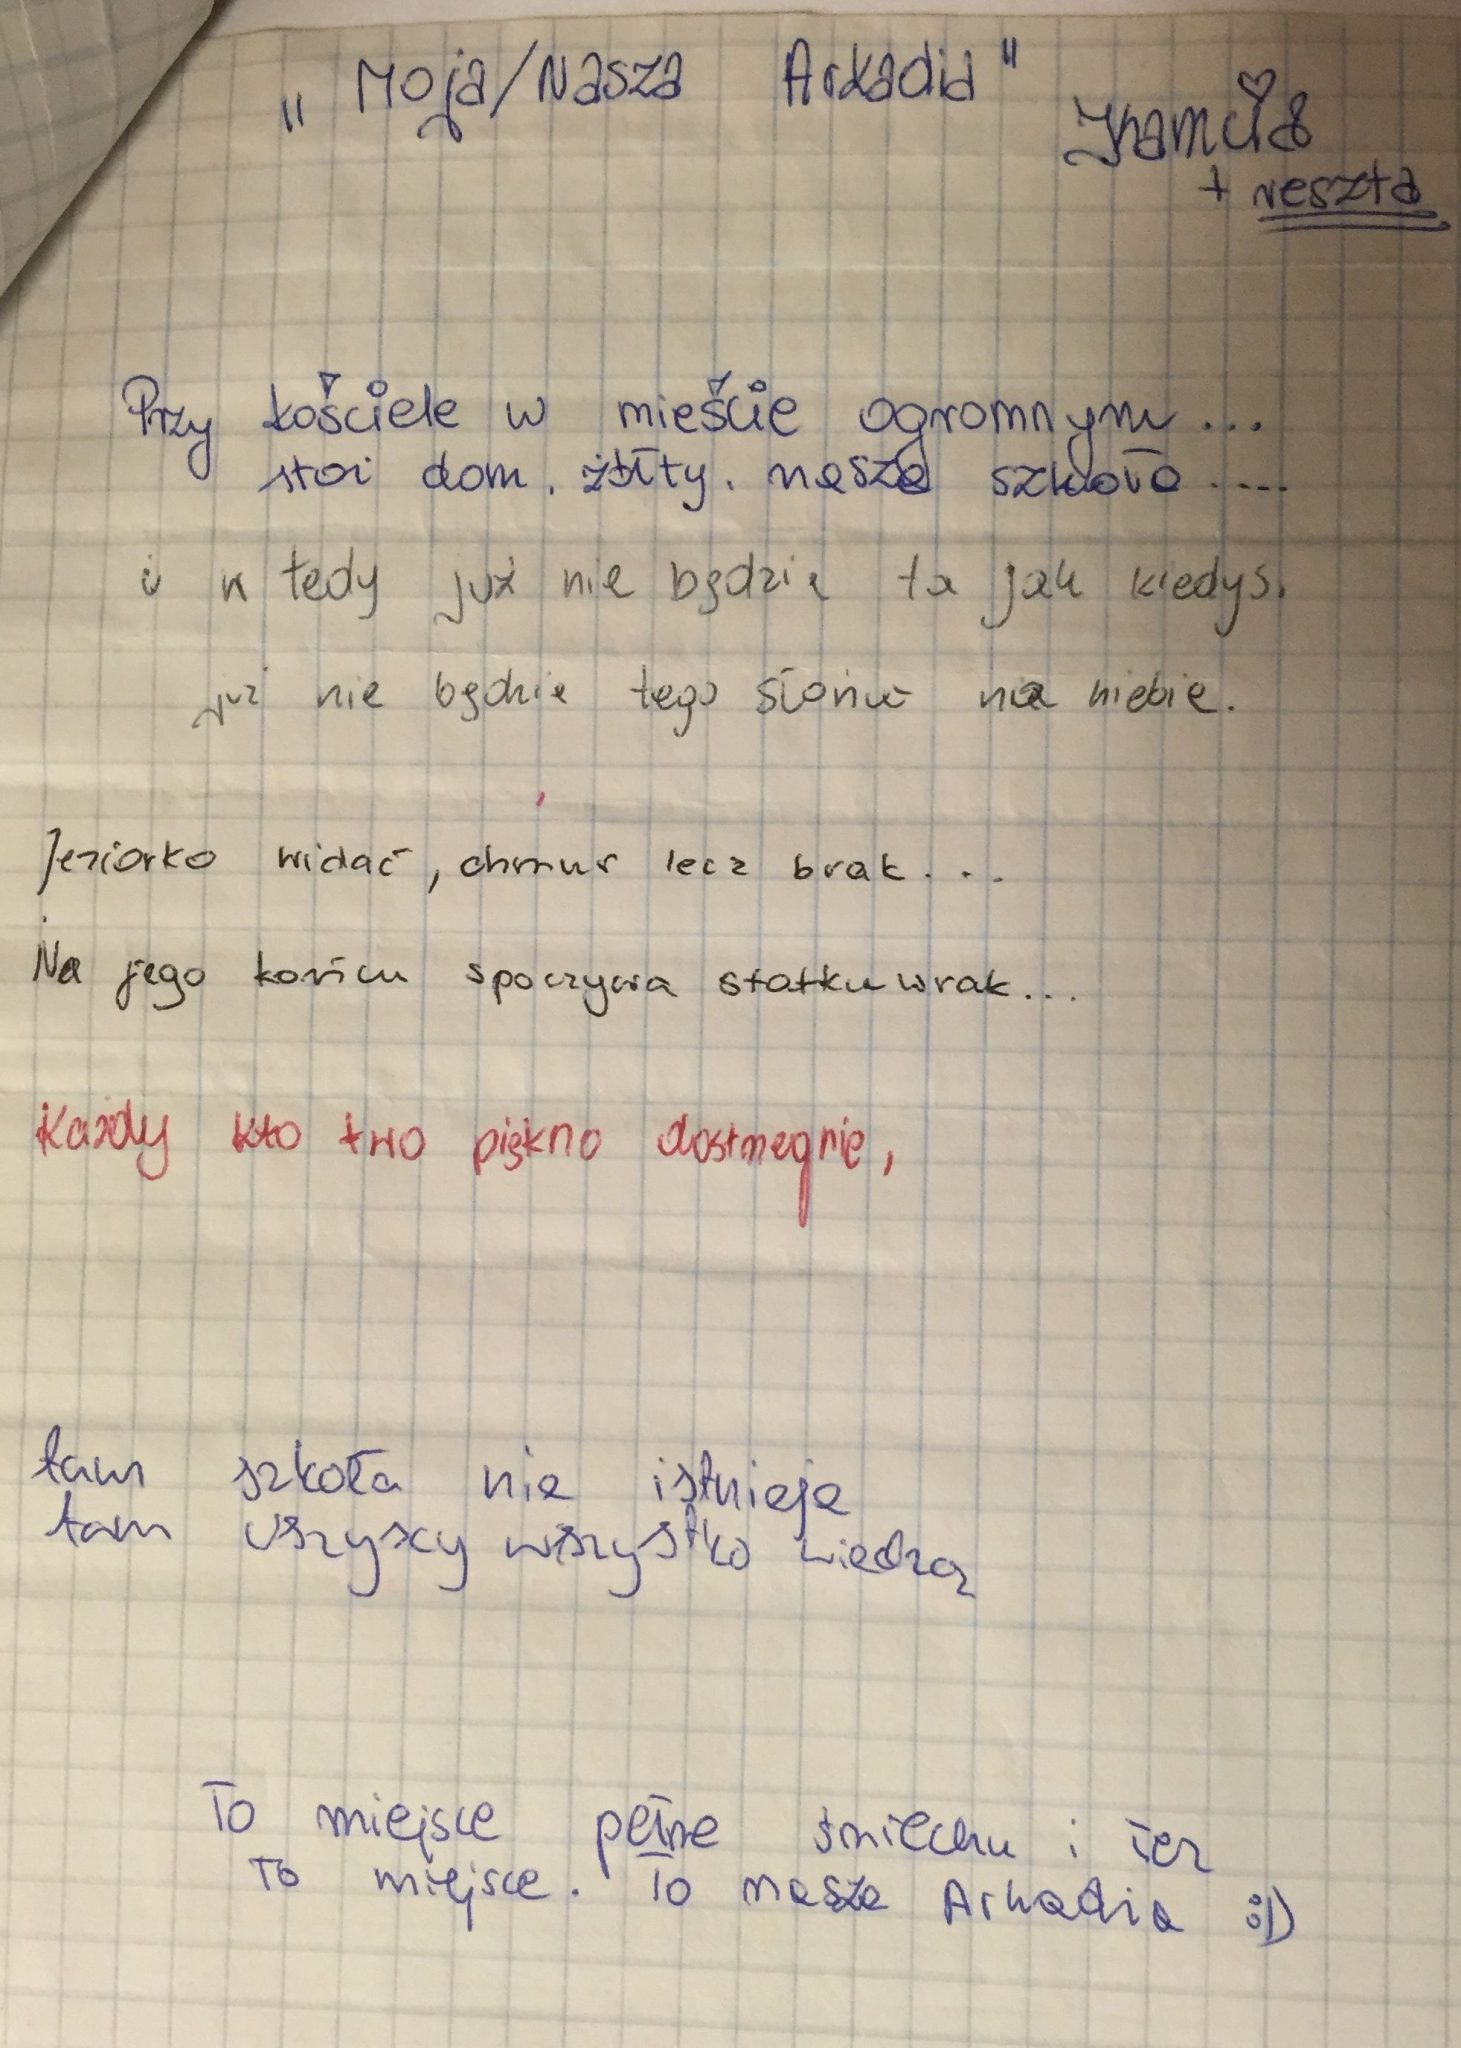 „Moja/Nasza Arkadia"
+ reszta
Przy kościele w mieście ogromnym...
stoi dom. żółty. nasza szkoła....
i w tedy już nie będzie ta jak kiedyś.
już nie będzie tego słońca na niebie.
Jeziorko widać, chmur lecz brak....
Na jego końcu spoczywa statku wrak...
Każdy kto two piękno dostrzegnie,
tam szkoła nie istnieje
tam wszyscy wszystko wiedzą
To miejsce pełne śmiechu i łez
To miejsce. To nasza Arkadia :D